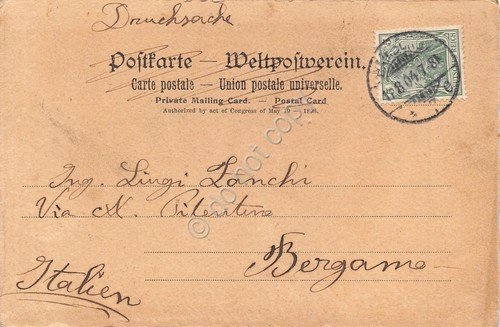 Drucksache
Postkarte — Weltpostverein.
Carte postale — Union postale universelle.
Private Mailing-Card. — Postal Card
Authorized by act of Congress of May 19 – 1898.
Ing. Luigi Zanchi
Via
Bergamo
Italien
do not copy